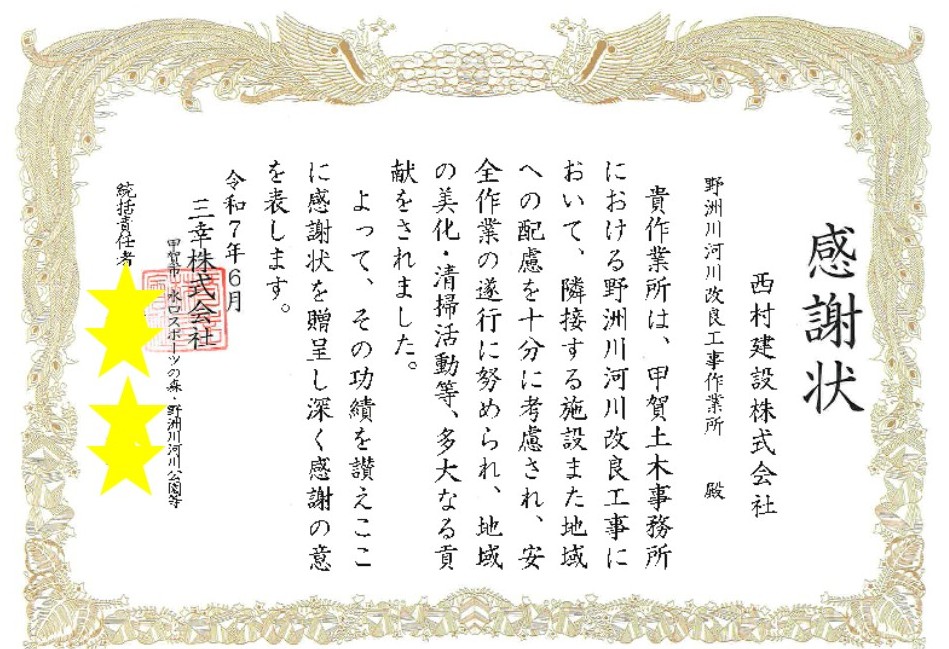 感謝状
西村建設株式会社
野洲川河川改良工事作業所 殿
貴作業所は、甲賀土木事務所
における野洲川河川改良工事に
おいて、隣接する施設また地域
への配慮を十分に考慮され、安
全作業の遂行に努められ、地域
の美化・清掃活動等、多大なる貢
献をされました。
よって、その功績を讃えここ
に感謝状を贈呈し深く感謝の意
を表します。
令和7年6月
三幸株式会社
甲賀市 水口スポーツの森・野洲川河川公園等
統括責任者